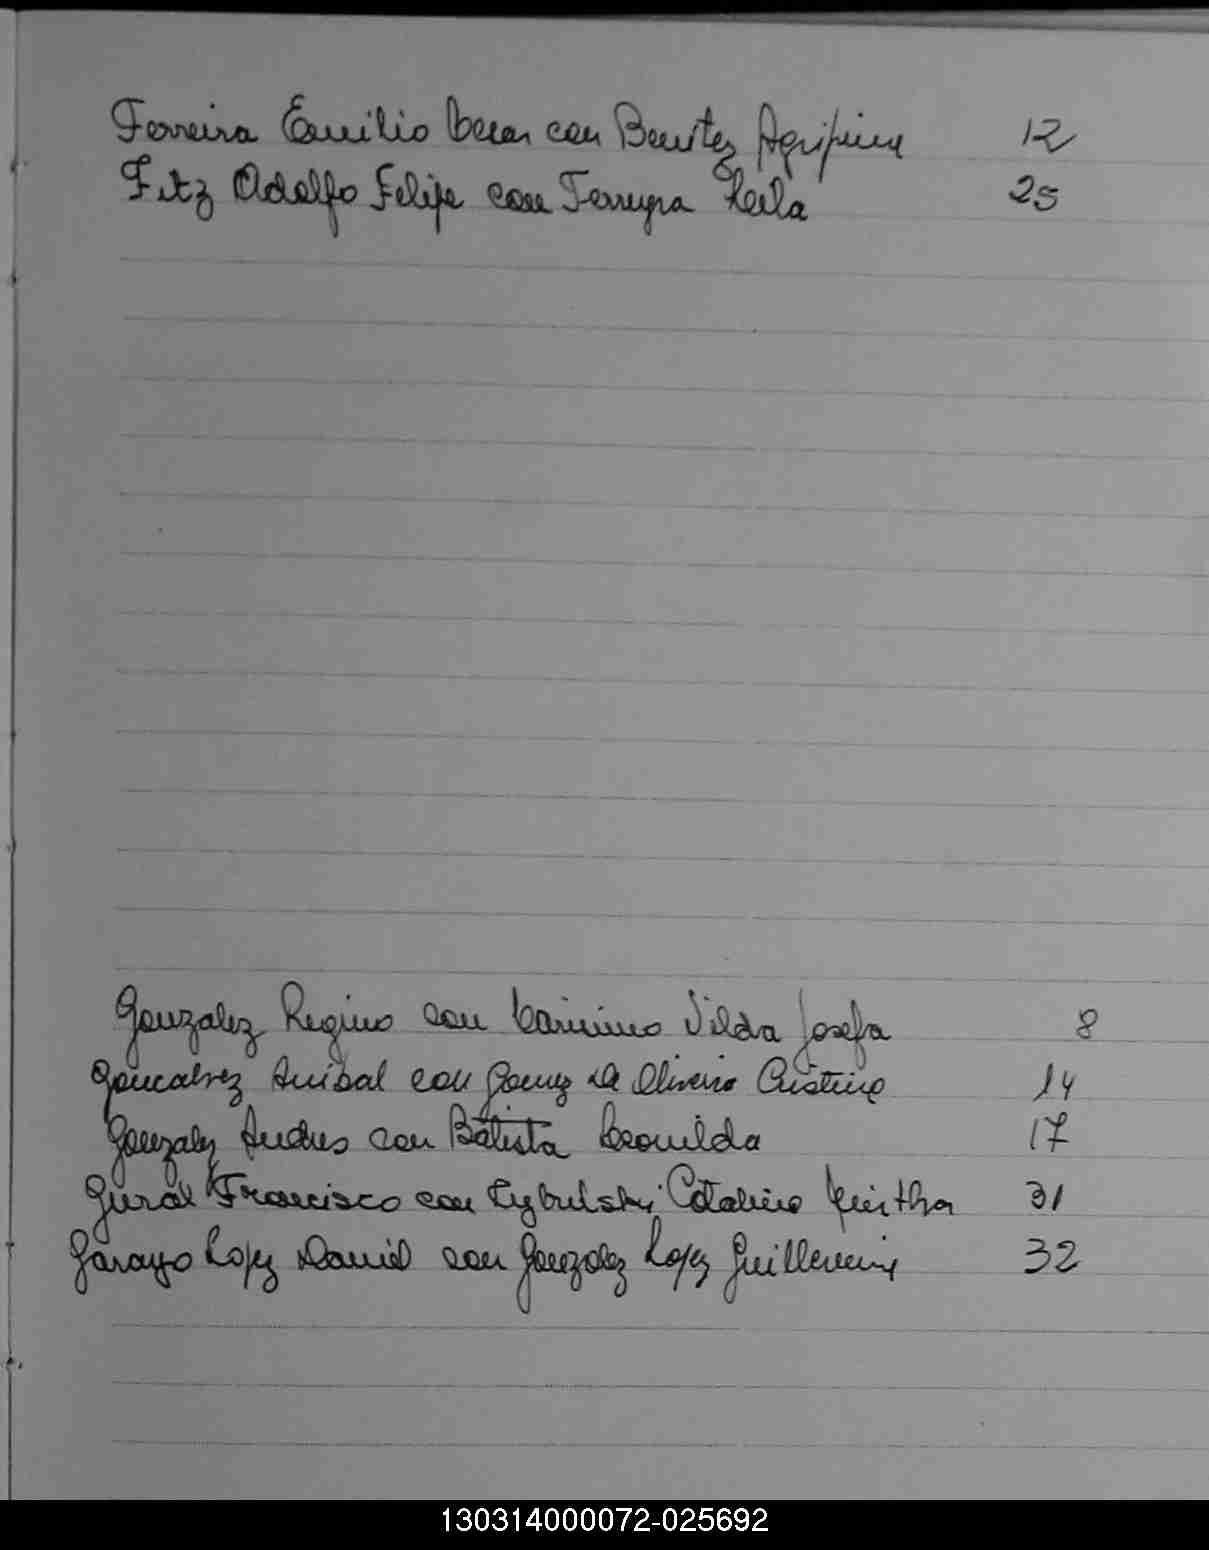 Ferreira Emilio con Benitez Agripina 12
Fitz Adolfo Felipe con Ferreyra Leila 25
Gonzalez Regino con Vilda Josefa 8
Goncalvez Anibal con Gomez de Oliveira Cristina 14
Gonzalez Andres con Batista 17
Gural Francisco con Cybulski Catalina 31
Garayo Lopez Daniel con Gonzalez Lopez Guillermina 32
130314000072-025692